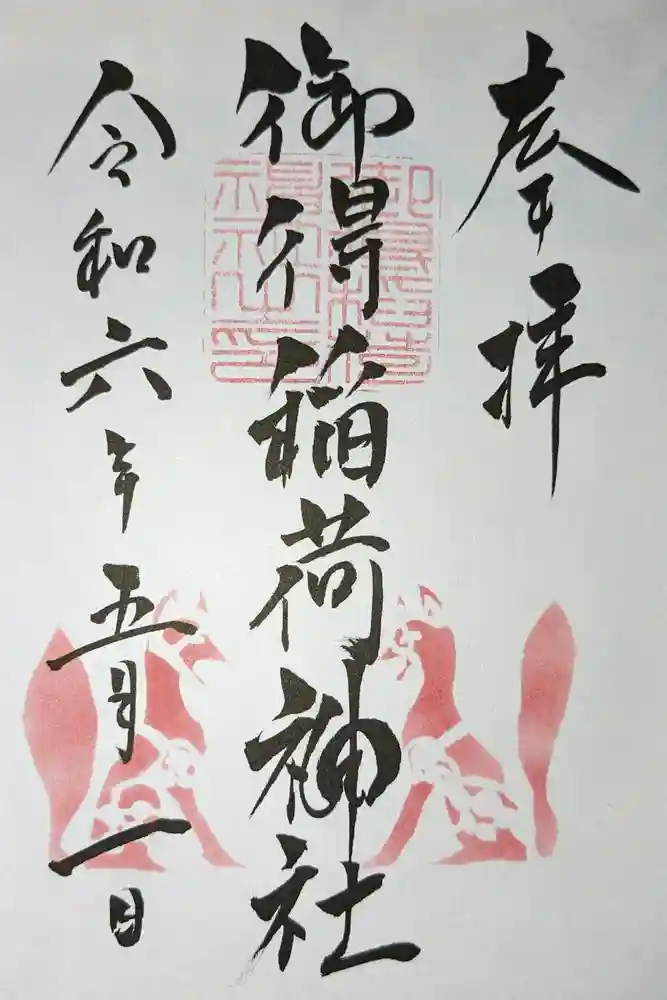 奉拝
御得稲荷神社
令和六年五月一日